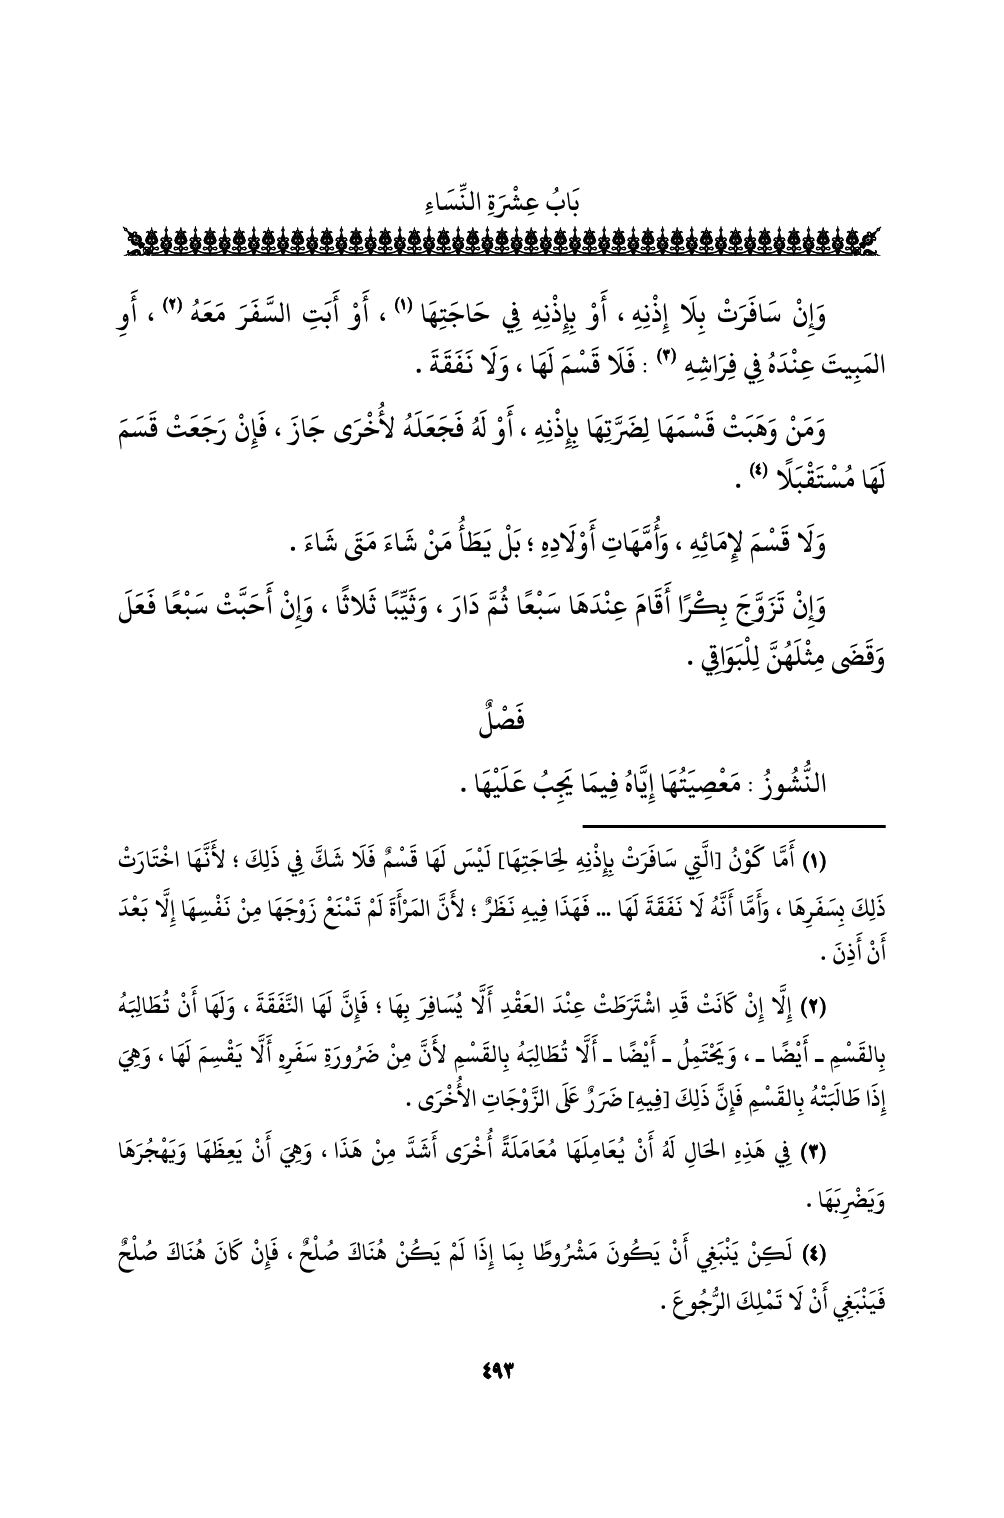 بَابُ عِشْرَةِ النِّسَاءِ
وَإِنْ سَافَرَتْ بِلَا إِذْنِهِ ، أَوْ بِإِذْنِهِ فِي حَاجَتِهَا (١) ، أَوْ أَبَتِ السَّفَرَ مَعَهُ (٢) ، أَوِ
المَبِيتَ عِنْدَهُ فِي فِرَاشِهِ (٣) : فَلَا قَسْمَ لَهَا ، وَلَا نَفَقَةَ .
وَمَنْ وَهَبَتْ قَسْمَهَا لِضَرَّتِهَا بِإِذْنِهِ ، أَوْ لَهُ فَجَعَلَهُ لأُخْرَى جَازَ ، فَإِنْ رَجَعَتْ قَسَمَ
لَهَا مُسْتَقْبَلًا (٤) .
وَلَا قَسْمَ لإِمَائِهِ ، وَأُمَّهَاتِ أَوْلَادِهِ ؛ بَلْ يَطَأُ مَنْ شَاءَ مَتَى شَاءَ .
وَإِنْ تَزَوَّجَ بِكْرًا أَقَامَ عِنْدَهَا سَبْعًا ثُمَّ دَارَ ، وَثَيِّبًا ثَلاثًا ، وَإِنْ أَحَبَّتْ سَبْعًا فَعَلَ
وَقَضَى مِثْلَهُنَّ لِلْبَوَاقِي .
فَصْلٌ
النُّشُوزُ : مَعْصِيَتُهَا إِيَّاهُ فِيمَا يَجِبُ عَلَيْهَا .
(١) أَمَّا كَوْنُ [الَّتِي سَافَرَتْ بِإِذْنِهِ لِحَاجَتِهَا] لَيْسَ لَهَا قَسْمٌ فَلَا شَكَّ فِي ذَلِكَ ؛ لأَنَّهَا اخْتَارَتْ
ذَلِكَ بِسَفَرِهَا ، وَأَمَّا أَنَّهُ لَا نَفَقَةَ لَهَا ... فَهَذَا فِيهِ نَظَرٌ ؛ لأَنَّ المَرْأَةَ لَمْ تَمْنَعْ زَوْجَهَا مِنْ نَفْسِهَا إِلَّا بَعْدَ
أَنْ أَذِنَ .
(٢) إِلَّا إِنْ كَانَتْ قَدِ اشْتَرَطَتْ عِنْدَ العَقْدِ أَلَّا يُسَافِرَ بِهَا ؛ فَإِنَّ لَهَا النَّفَقَةَ ، وَلَهَا أَنْ تُطَالِبَهُ
بِالقَسْمِ ـ أَيْضًا ـ ، وَيَحْتَمِلُ ـ أَيْضًا ـ أَلَّا تُطَالِبَهُ بِالقَسْمِ لأَنَّ مِنْ ضَرُورَةِ سَفَرِهِ أَلَّا يَقْسِمَ لَهَا ، وَهِيَ
إِذَا طَالَبَتْهُ بِالقَسْمِ فَإِنَّ ذَلِكَ [فِيهِ] ضَرَرٌ عَلَى الزَّوْجَاتِ الأُخْرَى .
(٣) فِي هَذِهِ الحَالِ لَهُ أَنْ يُعَامِلَهَا مُعَامَلَةً أُخْرَى أَشَدَّ مِنْ هَذَا ، وَهِيَ أَنْ يَعِظَهَا وَيَهْجُرَهَا
وَيَضْرِبَهَا .
(٤) لَكِنْ يَنْبَغِي أَنْ يَكُونَ مَشْرُوطًا بِمَا إِذَا لَمْ يَكُنْ هُنَاكَ صُلْحٌ ، فَإِنْ كَانَ هُنَاكَ صُلْحٌ
فَيَنْبَغِي أَنْ لَا تَمْلِكَ الرُّجُوعَ .
٤٩٣